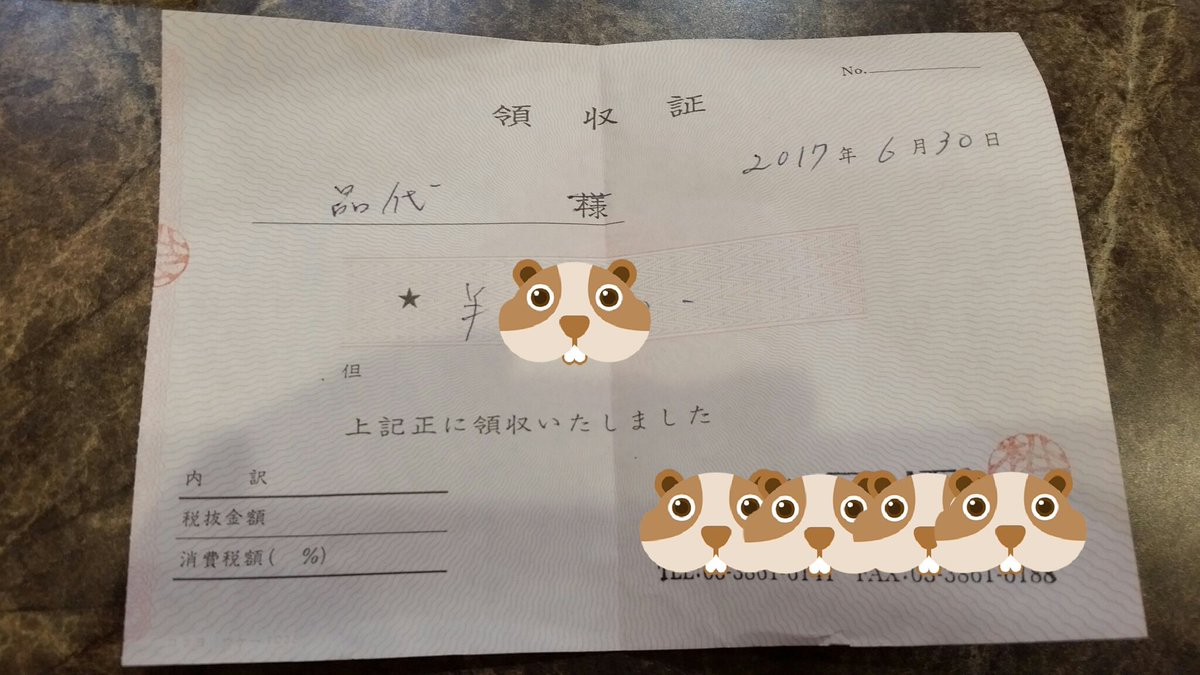 No.
領収証
2017年6月30日
品代 様
★ ¥ -
但
上記正に領収いたしました
内訳
税抜金額
消費税額( %)